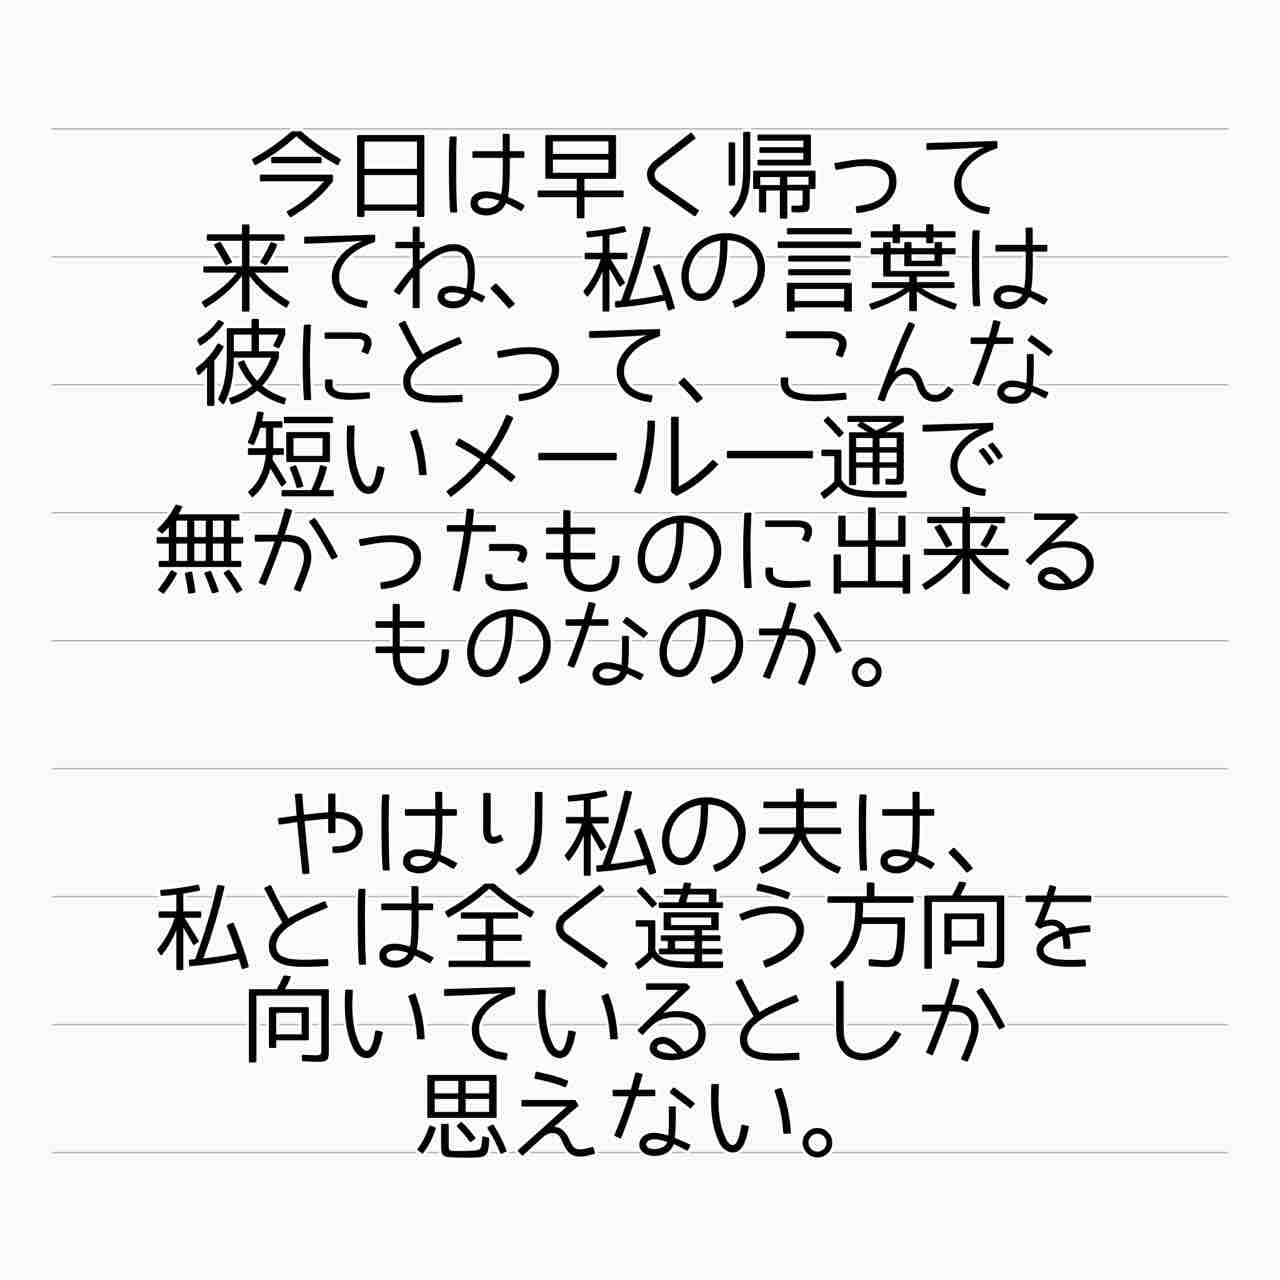 今日は早く帰って
来てね、私の言葉は
彼にとって、こんな
短いメール一通で
無かったものに出来る
ものなのか。
やはり私の夫は、
私とは全く違う方向を
向いているとしか
思えない。